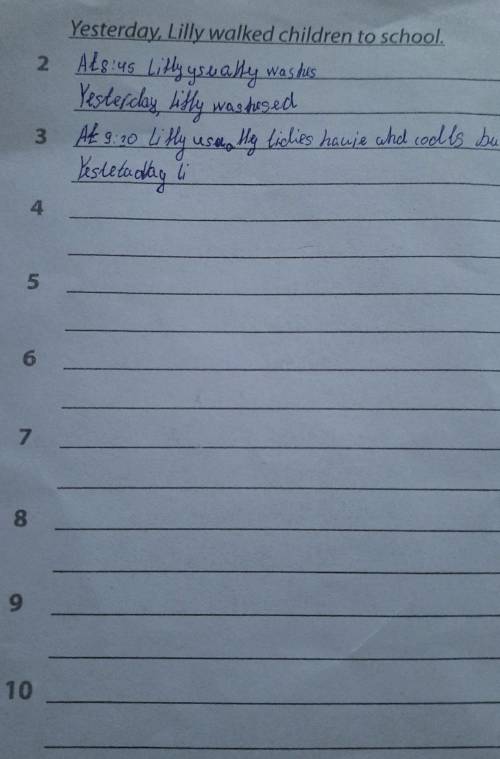 Yesterday, Lilly walked children to school.
2 At 8:45 Lilly usually washes
Yesterday, Lilly washesed
3 At 9:20 Lilly usually tidies house and
Li
4
5
6
7
8
9
10